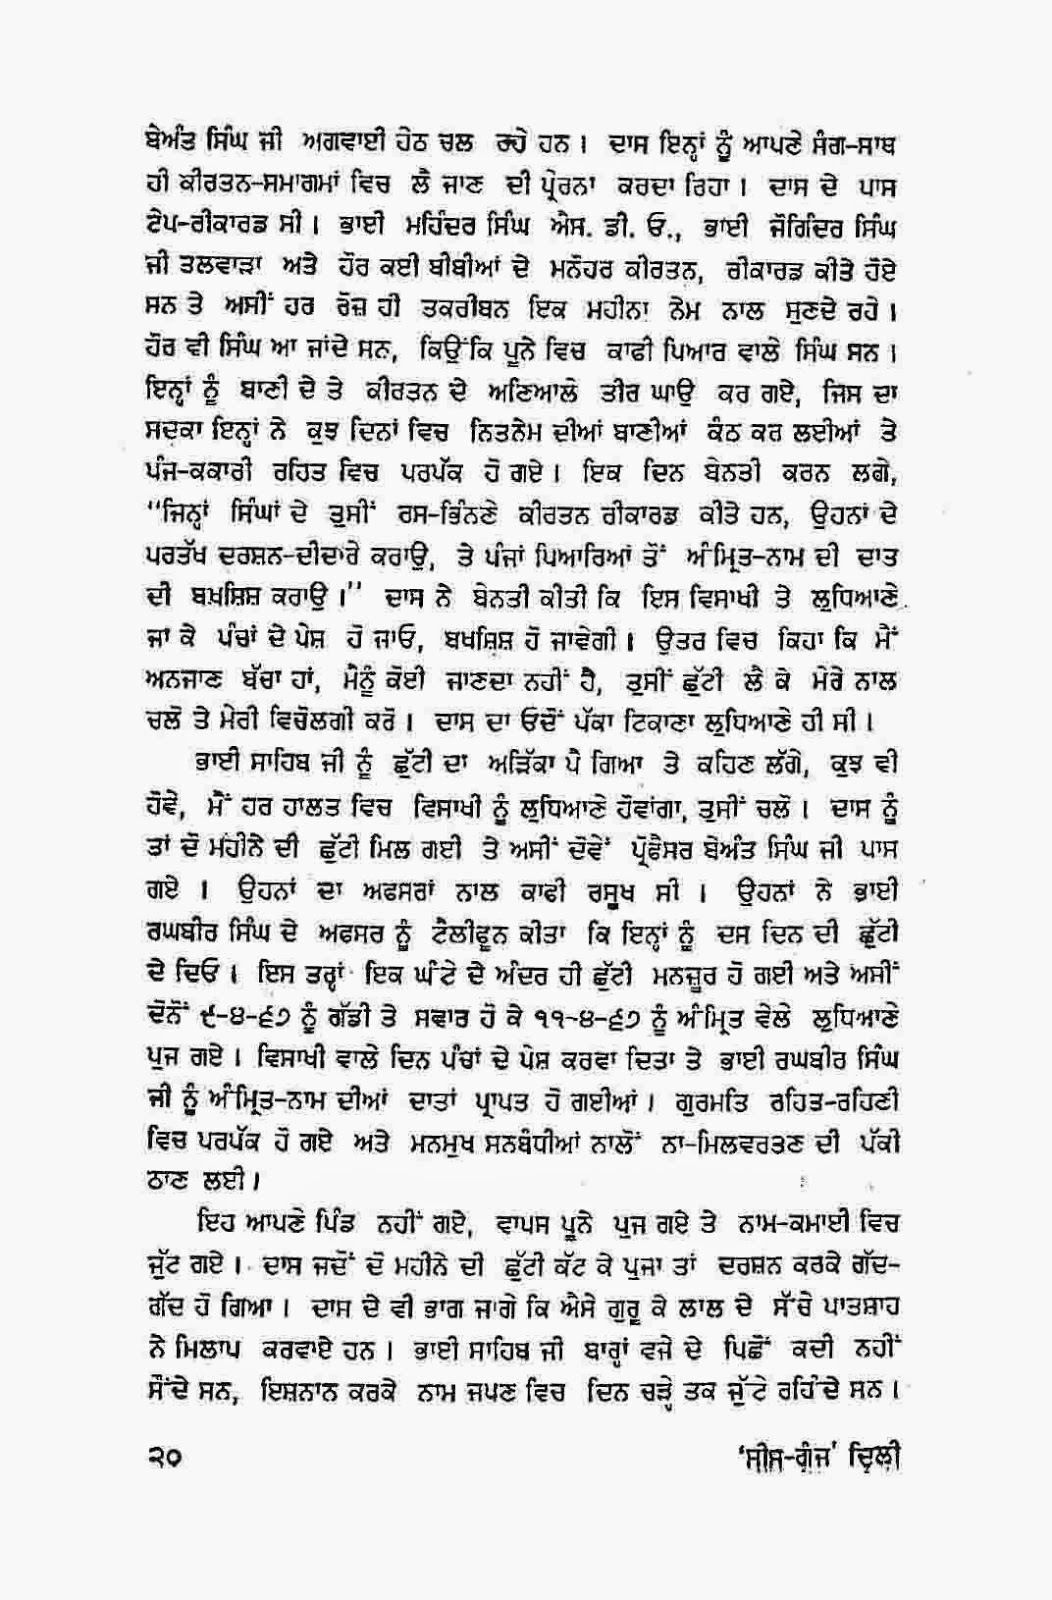 ਬੇਅੰਤ ਸਿੰਘ ਜੀ ਅਗਵਾਈ ਹੇਠ ਚਲ ਰਹੇ ਹਨ। ਦਾਸ ਇਨ੍ਹਾਂ ਨੂੰ ਆਪਣੇ ਸੰਗ-ਸਾਥ
ਹੀ ਕੀਰਤਨ-ਸਮਾਗਮਾਂ ਵਿਚ ਲੈ ਜਾਣ ਦੀ ਪ੍ਰੇਰਨਾ ਕਰਦਾ ਰਿਹਾ। ਦਾਸ ਦੇ ਪਾਸ
ਟੇਪ-ਰੀਕਾਰਡ ਸੀ। ਭਾਈ ਮਹਿੰਦਰ ਸਿੰਘ ਐਸ. ਡੀ. ਓ., ਭਾਈ ਜੋਗਿੰਦਰ ਸਿੰਘ
ਜੀ ਤਲਵਾੜਾ ਅਤੇ ਹੋਰ ਕਈ ਬੀਬੀਆਂ ਦੇ ਮਨੋਹਰ ਕੀਰਤਨ, ਰੀਕਾਰਡ ਕੀਤੇ ਹੋਏ
ਸਨ ਤੇ ਅਸੀਂ ਹਰ ਰੋਜ਼ ਹੀ ਤਕਰੀਬਨ ਇਕ ਮਹੀਨਾ ਨੇਮ ਨਾਲ ਸੁਣਦੇ ਰਹੇ।
ਹੋਰ ਵੀ ਸਿੰਘ ਆ ਜਾਂਦੇ ਸਨ, ਕਿਉਂਕਿ ਪੂਨੇ ਵਿਚ ਕਾਫੀ ਪਿਆਰ ਵਾਲੇ ਸਿੰਘ ਸਨ।
ਇਨ੍ਹਾਂ ਨੂੰ ਬਾਣੀ ਦੇ ਤੇ ਕੀਰਤਨ ਦੇ ਅਣਿਆਲੇ ਤੀਰ ਘਾਉ ਕਰ ਗਏ, ਜਿਸ ਦਾ
ਸਦਕਾ ਇਨ੍ਹਾਂ ਨੇ ਕੁਝ ਦਿਨਾਂ ਵਿਚ ਨਿਤਨੇਮ ਦੀਆਂ ਬਾਣੀਆਂ ਕੰਠ ਕਰ ਲਈਆਂ ਤੇ
ਪੰਜ-ਕਕਾਰੀ ਰਹਿਤ ਵਿਚ ਪਰਪੱਕ ਹੋ ਗਏ। ਇਕ ਦਿਨ ਬੇਨਤੀ ਕਰਨ ਲਗੇ,
“ਜਿਨ੍ਹਾਂ ਸਿੰਘਾਂ ਦੇ ਤੁਸੀਂ ਰਸ-ਭਿੰਨਣੇ ਕੀਰਤਨ ਰੀਕਾਰਡ ਕੀਤੇ ਹਨ, ਉਹਨਾਂ ਦੇ
ਪਰਤੱਖ ਦਰਸ਼ਨ-ਦੀਦਾਰੇ ਕਰਾਉ, ਤੇ ਪੰਜਾਂ ਪਿਆਰਿਆਂ ਤੋਂ ਅੰਮ੍ਰਿਤ-ਨਾਮ ਦੀ ਦਾਤ
ਦੀ ਬਖ਼ਸ਼ਿਸ਼ ਕਰਾਉ।” ਦਾਸ ਨੇ ਬੇਨਤੀ ਕੀਤੀ ਕਿ ਇਸ ਵਿਸਾਖੀ ਤੇ ਲੁਧਿਆਣੇ
ਜਾ ਕੇ ਪੰਚਾਂ ਦੇ ਪੇਸ਼ ਹੋ ਜਾਓ, ਬਖਸ਼ਿਸ਼ ਹੋ ਜਾਵੇਗੀ। ਉਤਰ ਵਿਚ ਕਿਹਾ ਕਿ ਮੈਂ
ਅਨਜਾਣ ਬੱਚਾ ਹਾਂ, ਮੈਨੂੰ ਕੋਈ ਜਾਣਦਾ ਨਹੀਂ ਹੈ, ਤੁਸੀਂ ਛੁੱਟੀ ਲੈ ਕੇ ਮੇਰੇ ਨਾਲ
ਚਲੋ ਤੇ ਮੇਰੀ ਵਿਚੋਲਗੀ ਕਰੋ। ਦਾਸ ਦਾ ਓਦੋਂ ਪੱਕਾ ਟਿਕਾਣਾ ਲੁਧਿਆਣੇ ਹੀ ਸੀ।
ਭਾਈ ਸਾਹਿਬ ਜੀ ਨੂੰ ਛੁੱਟੀ ਦਾ ਅੜਿੱਕਾ ਪੈ ਗਿਆ ਤੇ ਕਹਿਣ ਲੱਗੇ, ਕੁਝ ਵੀ
ਹੋਵੇ, ਮੈਂ ਹਰ ਹਾਲਤ ਵਿਚ ਵਿਸਾਖੀ ਨੂੰ ਲੁਧਿਆਣੇ ਹੋਵਾਂਗਾ, ਤੁਸੀਂ ਚਲੋ। ਦਾਸ ਨੂੰ
ਤਾਂ ਦੋ ਮਹੀਨੇ ਦੀ ਛੁੱਟੀ ਮਿਲ ਗਈ ਤੇ ਅਸੀਂ ਦੋਵੇਂ ਪ੍ਰੋਫੈਸਰ ਬੇਅੰਤ ਸਿੰਘ ਜੀ ਪਾਸ
ਗਏ। ਉਹਨਾਂ ਦਾ ਅਫਸਰਾਂ ਨਾਲ ਕਾਫੀ ਰਸੂਖ ਸੀ। ਉਹਨਾਂ ਨੇ ਭਾਈ
ਰਘਬੀਰ ਸਿੰਘ ਦੇ ਅਫਸਰ ਨੂੰ ਟੈਲੀਫੂਨ ਕੀਤਾ ਕਿ ਇਨ੍ਹਾਂ ਨੂੰ ਦਸ ਦਿਨ ਦੀ ਛੁੱਟੀ
ਦੇ ਦਿਓ। ਇਸ ਤਰ੍ਹਾਂ ਇਕ ਘੰਟੇ ਦੇ ਅੰਦਰ ਹੀ ਛੁੱਟੀ ਮਨਜ਼ੂਰ ਹੋ ਗਈ ਅਤੇ ਅਸੀਂ
ਦੋਨੋਂ ੯-੪-੬੭ ਨੂੰ ਗੱਡੀ ਤੇ ਸਵਾਰ ਹੋ ਕੇ ੧੧-੪-੬੭ ਨੂੰ ਅੰਮ੍ਰਿਤ ਵੇਲੇ ਲੁਧਿਆਣੇ
ਪੁਜ ਗਏ। ਵਿਸਾਖੀ ਵਾਲੇ ਦਿਨ ਪੰਚਾਂ ਦੇ ਪੇਸ਼ ਕਰਵਾ ਦਿਤਾ ਤੇ ਭਾਈ ਰਘਬੀਰ ਸਿੰਘ
ਜੀ ਨੂੰ ਅੰਮ੍ਰਿਤ-ਨਾਮ ਦੀਆਂ ਦਾਤਾਂ ਪ੍ਰਾਪਤ ਹੋ ਗਈਆਂ। ਗੁਰਮਤਿ ਰਹਿਤ-ਰਹਿਣੀ
ਵਿਚ ਪਰਪੱਕ ਹੋ ਗਏ ਅਤੇ ਮਨਮੁਖ ਸਨਬੰਧੀਆਂ ਨਾਲੋਂ ਨਾ-ਮਿਲਵਰਤਣ ਦੀ ਪੱਕੀ
ਠਾਣ ਲਈ।
ਇਹ ਆਪਣੇ ਪਿੰਡ ਨਹੀਂ ਗਏ, ਵਾਪਸ ਪੂਨੇ ਪੁਜ ਗਏ ਤੇ ਨਾਮ-ਕਮਾਈ ਵਿਚ
ਜੁੱਟ ਗਏ। ਦਾਸ ਜਦੋਂ ਦੋ ਮਹੀਨੇ ਦੀ ਛੁੱਟੀ ਕੱਟ ਕੇ ਪੁਜਾ ਤਾਂ ਦਰਸ਼ਨ ਕਰਕੇ ਗੱਦ-
ਗੱਦ ਹੋ ਗਿਆ। ਦਾਸ ਦੇ ਵੀ ਭਾਗ ਜਾਗੇ ਕਿ ਐਸੇ ਗੁਰੂ ਕੇ ਲਾਲ ਦੇ ਸੱਚੇ ਪਾਤਸ਼ਾਹ
ਨੇ ਮਿਲਾਪ ਕਰਵਾਏ ਹਨ। ਭਾਈ ਸਾਹਿਬ ਜੀ ਬਾਰ੍ਹਾਂ ਵਜੇ ਦੇ ਪਿਛੋਂ ਕਦੀ ਨਹੀਂ
ਸੌਂਦੇ ਸਨ, ਇਸ਼ਨਾਨ ਕਰਕੇ ਨਾਮ ਜਪਣ ਵਿਚ ਦਿਨ ਚੜ੍ਹੇ ਤਕ ਜੁੱਟੇ ਰਹਿੰਦੇ ਸਨ।
੨੦ ‘ਸੀਸ-ਗੰਜ’ ਦਿਲੀ